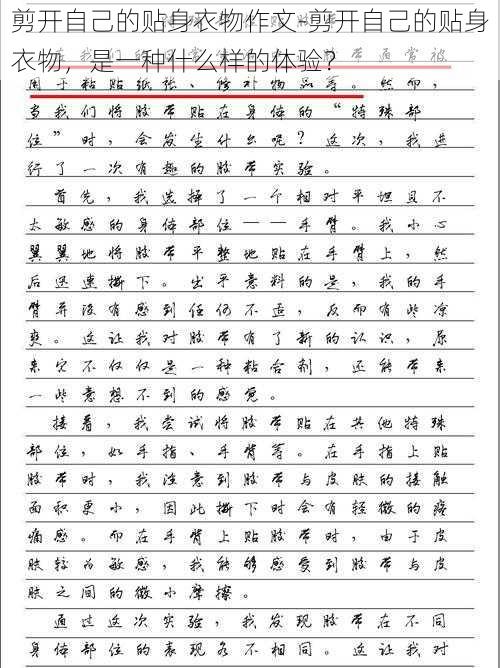 剪开自己的贴身衣物作文-剪开自己的贴身
衣物，是一种什么样的体验？
带通常被
用于粘贴纸张、修补物品等。然而，
当我们将胶带贴在身体的“特殊部
位”时，会发生什么呢？这次，我进
行了一次有趣的胶带实验。
首先，我选择了一个相对平坦且不
太敏感的身体部位——手臂。我小心
翼翼地将胶带平整地贴在手臂上，然
后迅速撕下。出乎意料的是，我的手
臂并没有感到任何不适，反而有些凉
爽。这让我对胶带有了新的认识，原
来它不仅仅是一种粘合剂，还能带来
一些意想不到的感觉。
接着，我尝试将胶带贴在其他特殊
部位，如手指、手背等。在手指上贴
胶带时，我注意到胶带与皮肤的接触
面积更小，因此撕下时会有轻微的疼
痛感。而在手背上贴胶带时，由于皮
肤较为敏感，我能够感受到胶带与皮
肤之间的微小摩擦。
通过这次实验，我发现胶带在不同
身体部位的表现各不相同。这让我对